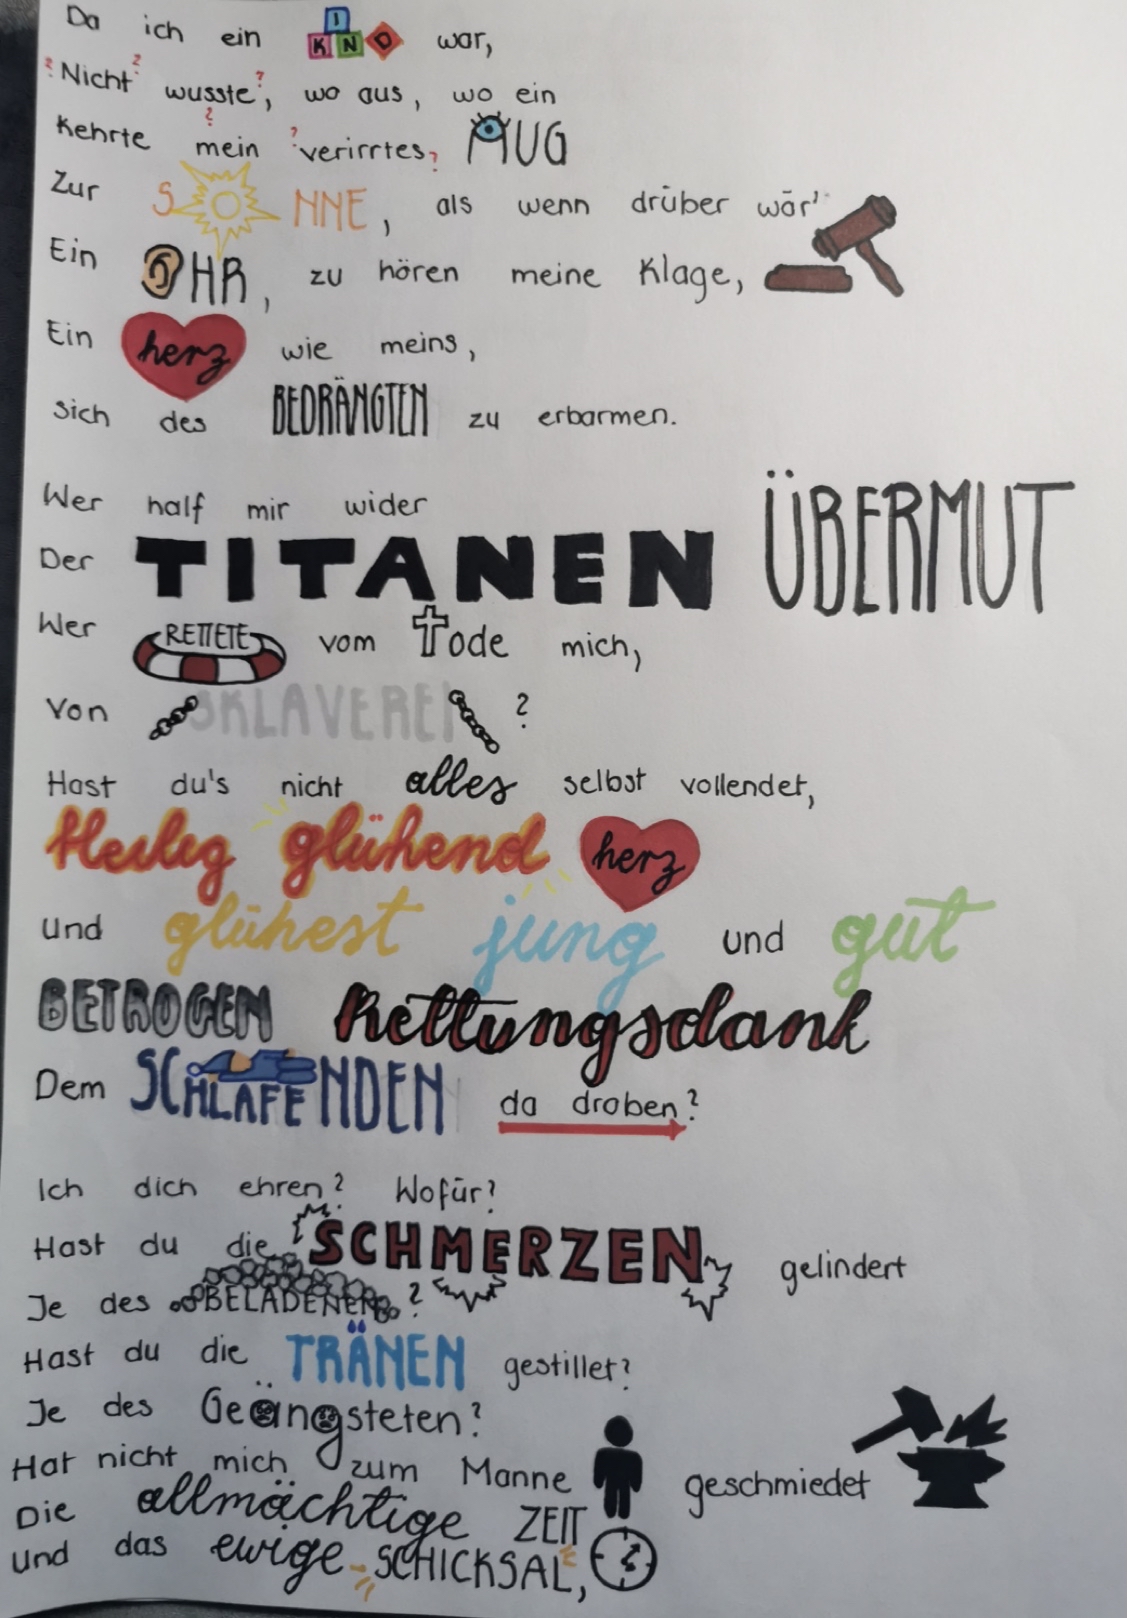 Da ich ein KIND war,
Nicht wusste, wo aus, wo ein
Kehrte mein verirrtes AUG
Zur SONNE, als wenn drüber wär'
Ein OHR, zu hören meine Klage,
Ein herz wie meins,
Sich des BEDRÄNGTEN zu erbarmen.
Wer half mir wider
Der TITANEN ÜBERMUT
Wer RETTETE vom Tode mich,
Von SKLAVEREI?
Hast du's nicht alles selbst vollendet,
Heilig glühend herz
und glühest jung und gut
BETROGEN Rettungsdank
Dem SCHLAFENDEN da droben?
Ich dich ehren? Wofür?
Hast du die SCHMERZEN gelindert
Je des BELADENEN?
Hast du die TRÄNEN gestillet?
Je des Geängsteten?
Hat nicht mich zum Manne geschmiedet
Die allmächtige ZEIT
und das ewige SCHICKSAL,